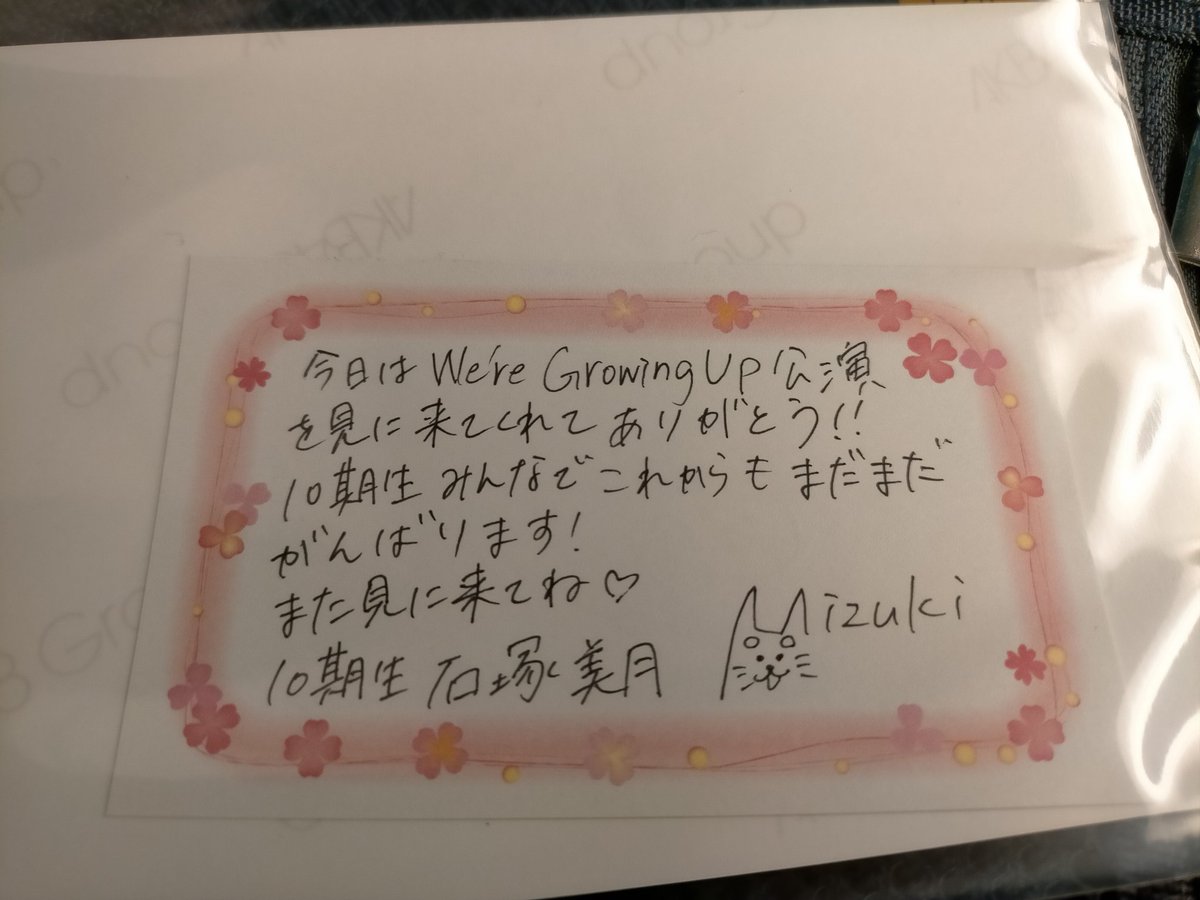 今日は We're Growing Up 公演
を見に来てくれてありがとう!!
10期生みんなでこれからもまだまだ
がんばります!
また見に来てね♡
10期生 石塚美月
Mizuki